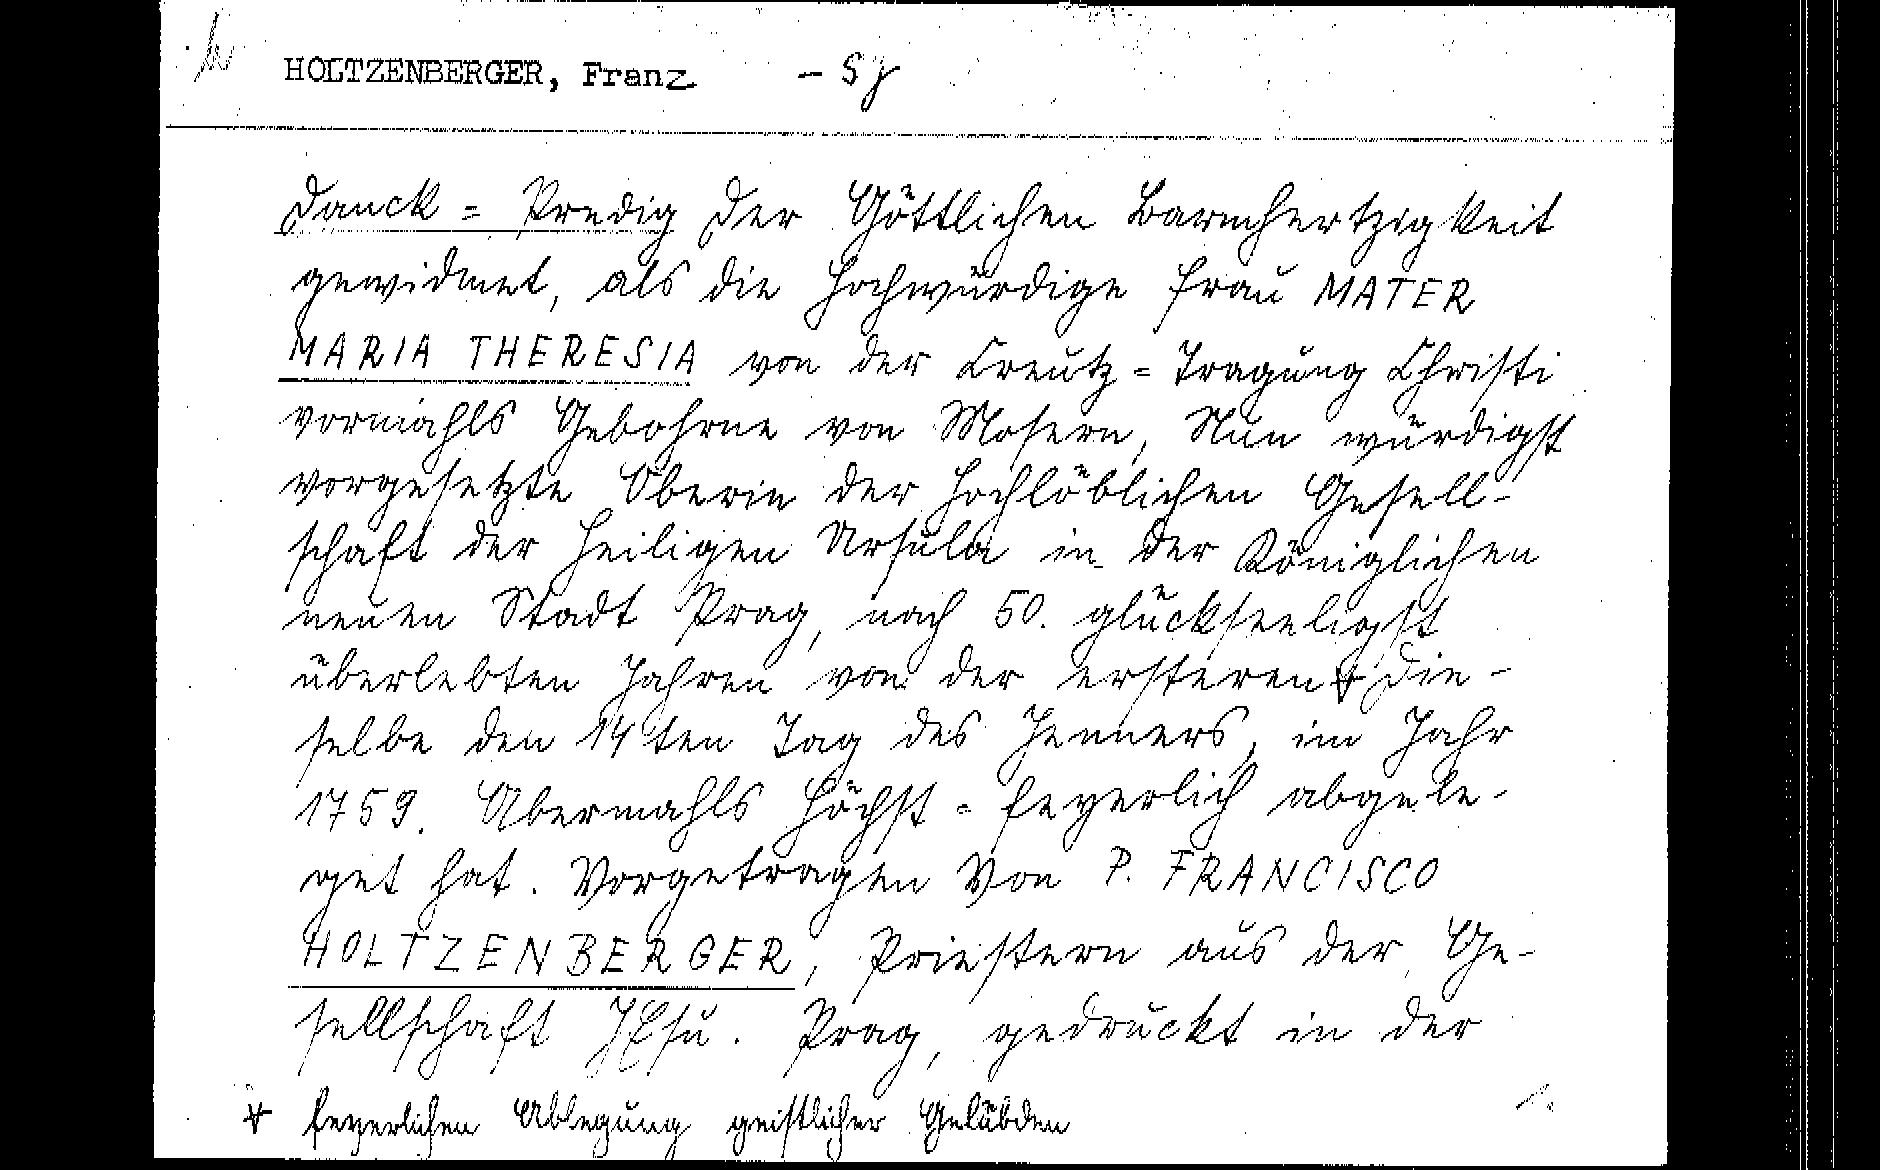 HOLTZENBERGER, Franz - SJ
Danck = Predig der Göttlichen Barmhertzigkeit
gewidmet, als die Hochwürdige Frau MATER
MARIA THERESIA von der Creutz = Tragung Christi
vormahls Gebohrne von Mosern, Nun würdigst
vorgesetzte Oberin der Hochlöblichen Gesell-
schaft der Heiligen Ursula in der Königlichen
neuen Stadt Prag, nach 50. glückseeligst
überlebten Jahren von der ersteren * die-
selbe den 14ten Tag des Jenners, im Jahr
1759. Abermahls Höchst = feyerlich abgele-
get hat. Vorgetragen Von P. FRANCISCO
HOLTZENBERGER, Priestern aus der Ge-
sellschaft JEsu. Prag, gedruckt in der
* feyerlichen Ablegung geistlicher Gelübden